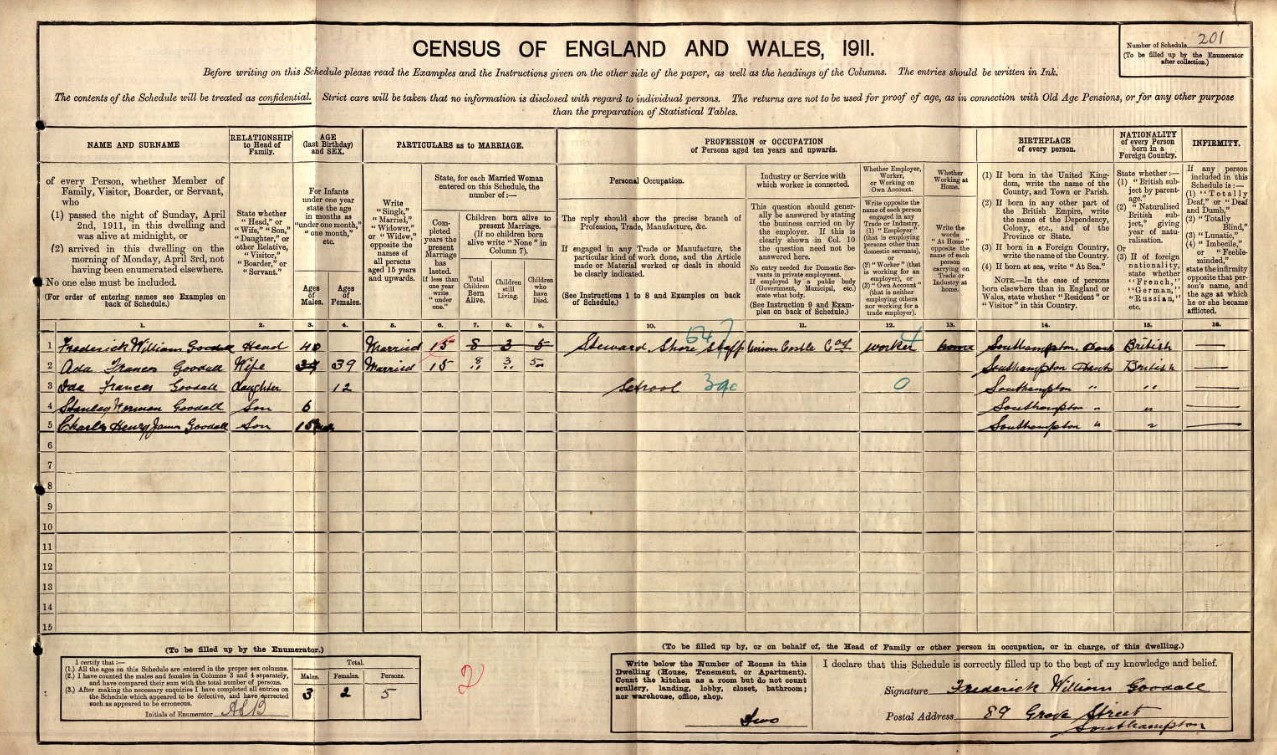 CENSUS OF ENGLAND AND WALES, 1911.
Number of Schedule 201
(To be filled up by the Enumerator
after collection.)
Before writing on this Schedule please read the Examples and the Instructions given on the other side of the paper, as well as the headings of the Columns. The entries should be written in Ink.
The contents of the Schedule will be treated as confidential. Strict care will be taken that no information is disclosed with regard to individual persons. The returns are not to be used for proof of age, as in connection with Old Age Pensions, or for any other purpose
than the preparation of Statistical Tables.
NAME AND SURNAME
of every Person, whether Member of
Family, Visitor, Boarder, or Servant,
who
(1) passed the night of Sunday, April
2nd, 1911, in this dwelling and
was alive at midnight, or
(2) arrived in this dwelling on the
morning of Monday, April 3rd, not
having been enumerated elsewhere.
No one else must be included.
(For order of entering names see Examples on
back of Schedule.)
RELATIONSHIP
to Head of
Family.
State whether
"Head," or
"Wife," "Son,"
"Daughter," or
other Relative,
"Visitor,"
"Boarder," or
"Servant."
AGE
(last Birthday)
and SEX.
For Infants
under one year
state the age
in months as
"under one month,"
"one month,"
etc.
Ages
of
Males.
Ages
of
Females.
PARTICULARS as to MARRIAGE.
Write
"Single,"
"Married,"
"Widower,"
or "Widow,"
opposite the
names of
all persons
aged 15 years
and upwards.
State, for each Married Woman
entered on this Schedule, the
number of:—
Completed
years the
present
Marriage
has
lasted.
If less than
one year
write
"under
one."
Children born alive to
present Marriage.
(If no children born
alive write "None" in
Column 7).
Total
Children
Born
Alive.
Children
still
Living.
Children
who
have
Died.
PROFESSION or OCCUPATION
of Persons aged ten years and upwards.
Personal Occupation.
The reply should show the precise branch of
Profession, Trade, Manufacture, &c.
If engaged in any Trade or Manufacture, the
particular kind of work done, and the Article
made or Material worked or dealt in should
be clearly indicated.
(See Instructions 1 to 8 and Examples on back
of Schedule.)
Industry or Service with
which worker is connected.
This question should gener-
ally be answered by stating
the business carried on by
the employer. If this is
clearly shown in Col. 10
the question need not be
answered here.
No entry needed for Domestic Ser-
vants in private employment.
If employed by a public body
(Government, Municipal, etc.)
state what body.
(See Instruction 9 and Exam-
ples on back of Schedule.)
Whether Employer,
Worker,
or Working on
Own Account.
Write opposite the
name of each person
engaged in any
Trade or Industry,
(1) "Employer"
(that is employing
persons other than
domestic servants),
or
(2) "Worker" (that
is working for an
employer), or
(3) "Own Account"
(that is neither
employing others
nor working for a
trade employer).
Whether
Working at
Home.
Write the
words
"At Home"
opposite the
name of each
person
carrying on
Trade or
Industry at
home.
BIRTHPLACE
of every person.
(1) If born in the United King-
dom, write the name of the
County, and Town or Parish.
(2) If born in any other part of
the British Empire, write
the name of the Dependency,
Colony, etc., and of the
Province or State.
(3) If born in a Foreign Country,
write the name of the Country.
(4) If born at sea, write "At Sea."
NOTE.—In the case of persons
born elsewhere than in England or
Wales, state whether "Resident" or
"Visitor" in this Country.
NATIONALITY
of every Person
born in a
Foreign Country.
State whether:—
(1) "British sub-
ject by parent-
age,"
(2) "Naturalised
British sub-
ject," giving
year of natu-
ralisation.
Or
(3) If of foreign
nationality,
state whether
"French,"
"German,"
"Russian,"
etc.
INFIRMITY.
If any person
included in this
Schedule is:—
(1) "Totally
Deaf," or "Deaf
and Dumb,"
(2) "Totally
Blind,"
(3) "Lunatic,"
(4) "Imbecile,"
or "Feeble-
minded,"
state the infirmity
opposite that per-
son's name, and
the age at which
he or she became
afflicted.
1. 2. 3. 4. 5. 6. 7. 8. 9. 10. 11. 12. 13. 14. 15. 16.
1 Frederick William Goodall Head 40 Married 15 8 3 5 Steward Shore Staff 647 Union Castle Coy worker 4 home Southampton Hants British —
2 Ada Frances Goodall Wife 39 Married 15 8 3 5 Southampton Hants British —
3 Ida Frances Goodall daughter 12 School 390 0 Southampton " " —
4 Stanley Norman Goodall Son 6 Southampton " " —
5 Charles Henry James Goodall Son Southampton " " —
6
7
8
9
10
11
12
13
14
15
(To be filled up by the Enumerator.)
I certify that:—
(1.) All the ages on this Schedule are entered in the proper sex columns.
(2.) I have counted the males and females in Columns 3 and 4 separately,
and have compared their sum with the total number of persons.
(3.) After making the necessary enquiries I have completed all entries on
the Schedule which appeared to be defective, and have corrected
such as appeared to be erroneous.
Initials of Enumerator
Total.
Males. Females. Persons.
3 2 5
2
(To be filled up by, or on behalf of, the Head of Family or other person in occupation, or in charge, of this dwelling.)
Write below the Number of Rooms in this
Dwelling (House, Tenement, or Apartment).
Count the kitchen as a room but do not count
scullery, landing, lobby, closet, bathroom;
nor warehouse, office, shop.
Two
I declare that this Schedule is correctly filled up to the best of my knowledge and belief.
Signature Frederick William Goodall
Postal Address 89 Grove Street
Southampton